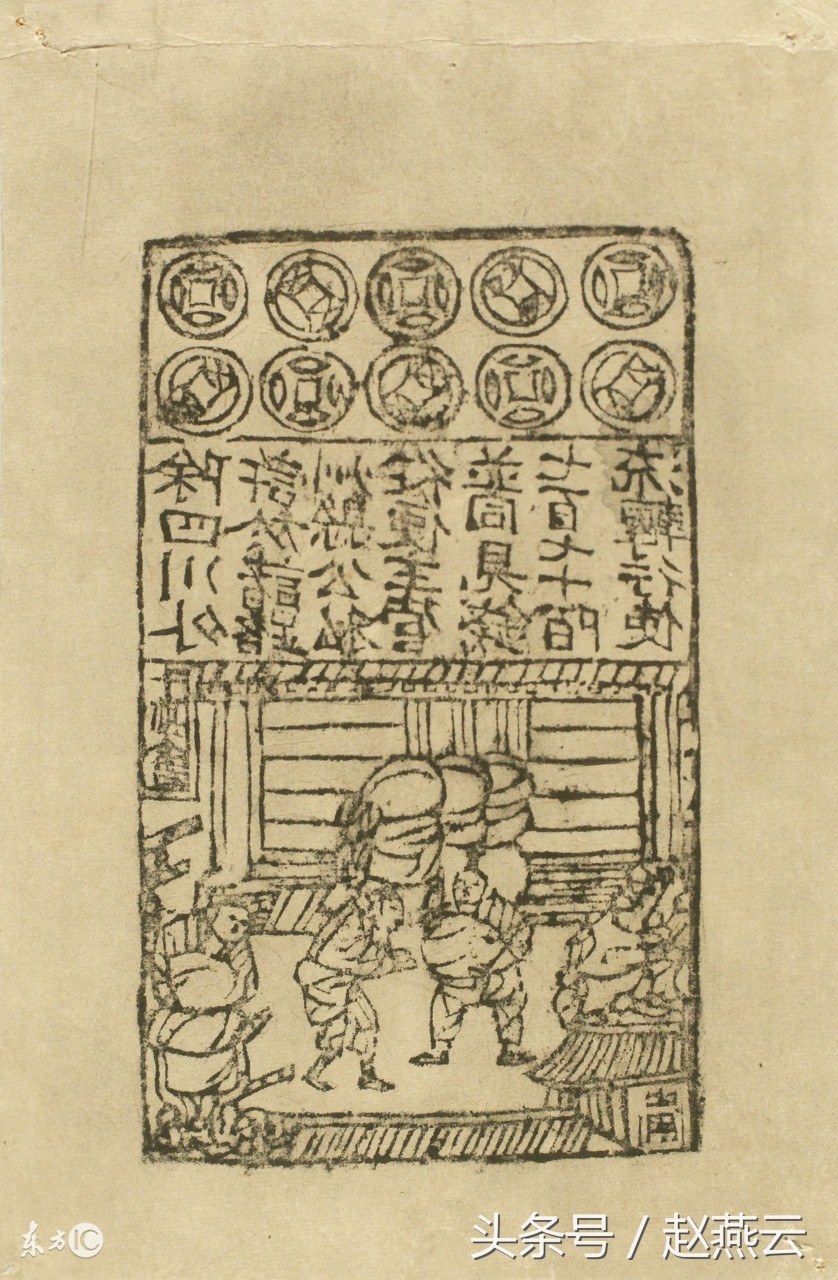 除四川外
許於諸路
州縣公私
從便主管
並同見錢
七百七十陌
流轉行使
东方IC
头条号 / 赵燕云